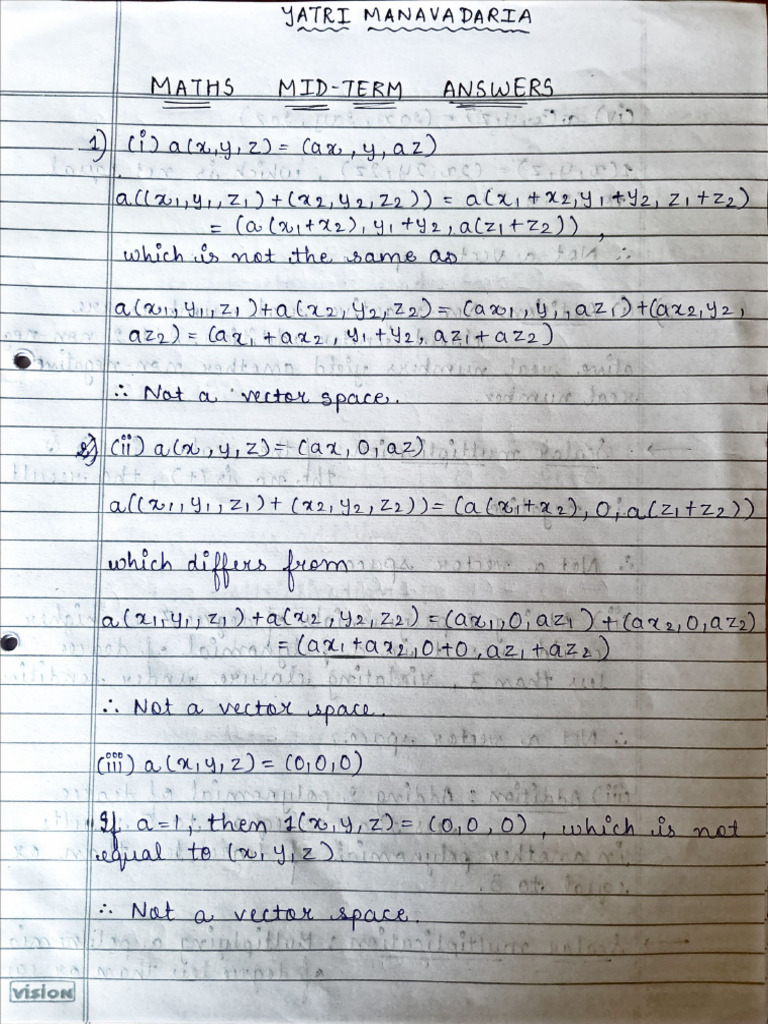 YATRI MANAVADARIA
MATHS MID-TERM ANSWERS
1) (i) a(x,y,z) = (ax, y, az)
a((x1,y1,z1)+(x2,y2,z2)) = a(x1+x2,y1+y2,z1+z2)
= (a(x1+x2), y1+y2, a(z1+z2)),
which is not the same as
a(x1,y1,z1)+a(x2,y2,z2) = (ax1,y1,az1)+(ax2,y2,
az2) = (ax1+ax2, y1+y2, az1+az2)
∴ Not a vector space.
(ii) a(x,y,z) = (ax, 0, az)
a((x1,y1,z1)+(x2,y2,z2)) = (a(x1+x2), 0, a(z1+z2))
which differs from
a(x1,y1,z1)+a(x2,y2,z2) = (ax1,0,az1)+(ax2,0,az2)
= (ax1+ax2, 0+0, az1+az2)
∴ Not a vector space.
(iii) a(x,y,z) = (0,0,0)
If a=1, then 1(x,y,z) = (0,0,0), which is not
equal to (x,y,z)
∴ Not a vector space.
VISION